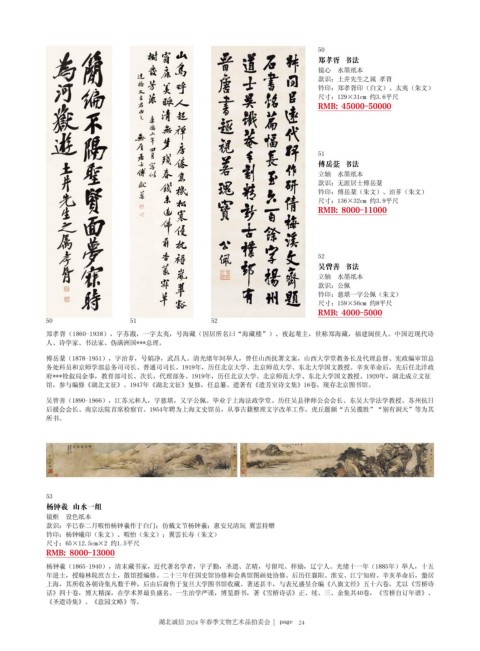 50
郑孝胥 书法
镜心 水墨纸本
款识：土井先生之属 孝胥
钤印：郑孝胥印（白文）、太夷（朱文）
尺寸：129×31cm 约3.6平尺
RMB: 45000-50000
51
傅岳棻 书法
立轴 水墨纸本
款识：无涯居士傅岳棻
钤印：傅岳棻（朱文）、治芗（朱文）
尺寸：136×32cm 约3.9平尺
RMB: 8000-11000
52
吴曾善 书法
立轴 水墨纸本
款识：公佩
钤印：慈堪一字公佩（朱文）
尺寸：159×56cm 约8平尺
RMB: 4000-5000
简编不隔圣贤面梦寐时
为河岳游
土井先生之属 孝胥
50
51
52
郑孝胥（1860-1938），字苏戡，一字太夷，号海藏（因居所名曰“海藏楼”），夜起菴主，世称郑海藏，福建闽侯人。中国近现代诗
人、诗学家、书法家、伪满洲国***总理。
傅岳棻（1878-1951），字治芗，号娟净，武昌人。清光绪年间举人，曾任山西抚署文案，山西大学堂教务长及代理总督、宪政编审馆总
务处科员和京师学部总务司司长、普通司司长。1919年，历任北京大学、北京师范大学、东北大学国文教授。辛亥革命后，先后任北洋政
府***铨叙局佥事，教育部司长、次长，代理部务。1919年，历任北京大学、北京师范大学、东北大学国文教授。1920年，湖北成立文征
馆，参与编修《湖北文征》。1947年《湖北文征》复修，任总纂。遗著有《遗芳室诗文集》16卷，现存北京图书馆。
吴曾善（1890-1966），江苏元和人，字慈堪，又字公佩。毕业于上海法政学堂。历任吴县律师公会会长、东吴大学法学教授、苏州抗日
后援会会长、南京法院首席检察官。1954年聘为上海文史馆员，从事古籍整理文字改革工作。虎丘题额“古吴揽胜”“别有洞天”等为其
所书。
53
杨钟羲 山水一组
镜框 设色纸本
款识：辛巳春二月暇怡杨钟羲作于白门；仿戴文节杨钟羲；惠安兄清玩 冀雲持赠
钤印：杨钟羲印（朱文）、暇怡（朱文）；冀雲长寿（朱文）
尺寸：65×12.5cm×2 约1.5平尺
RMB: 8000-13000
杨钟羲（1865-1940），清末藏书家，近代著名学者，字子勤，圣遗、芷晴，号留垞、梓励，辽宁人。光绪十一年（1885年）举人，十五
年进士，授翰林院庶吉士，散馆授编修。二十三年任国史馆协修和会典馆图画处协修。后历任襄阳、淮安、江宁知府。辛亥革命后，蛰居
上海，其所收各朝诗集凡数千种，后由后裔售于复旦大学图书馆收藏。著述甚丰，与表兄盛昱合编《八旗文经》五十六卷，尤以《雪桥诗
话》四十卷，博大精深，在学术界最负盛名。一生治学严谨，博览群书。著《雪桥诗话》正、续、三、余集共40卷，《雪桥自订年谱》、
《圣遗诗集》、《意园文略》等。
湖北诚信 2024 年春季文物艺术品拍卖会 | page 24